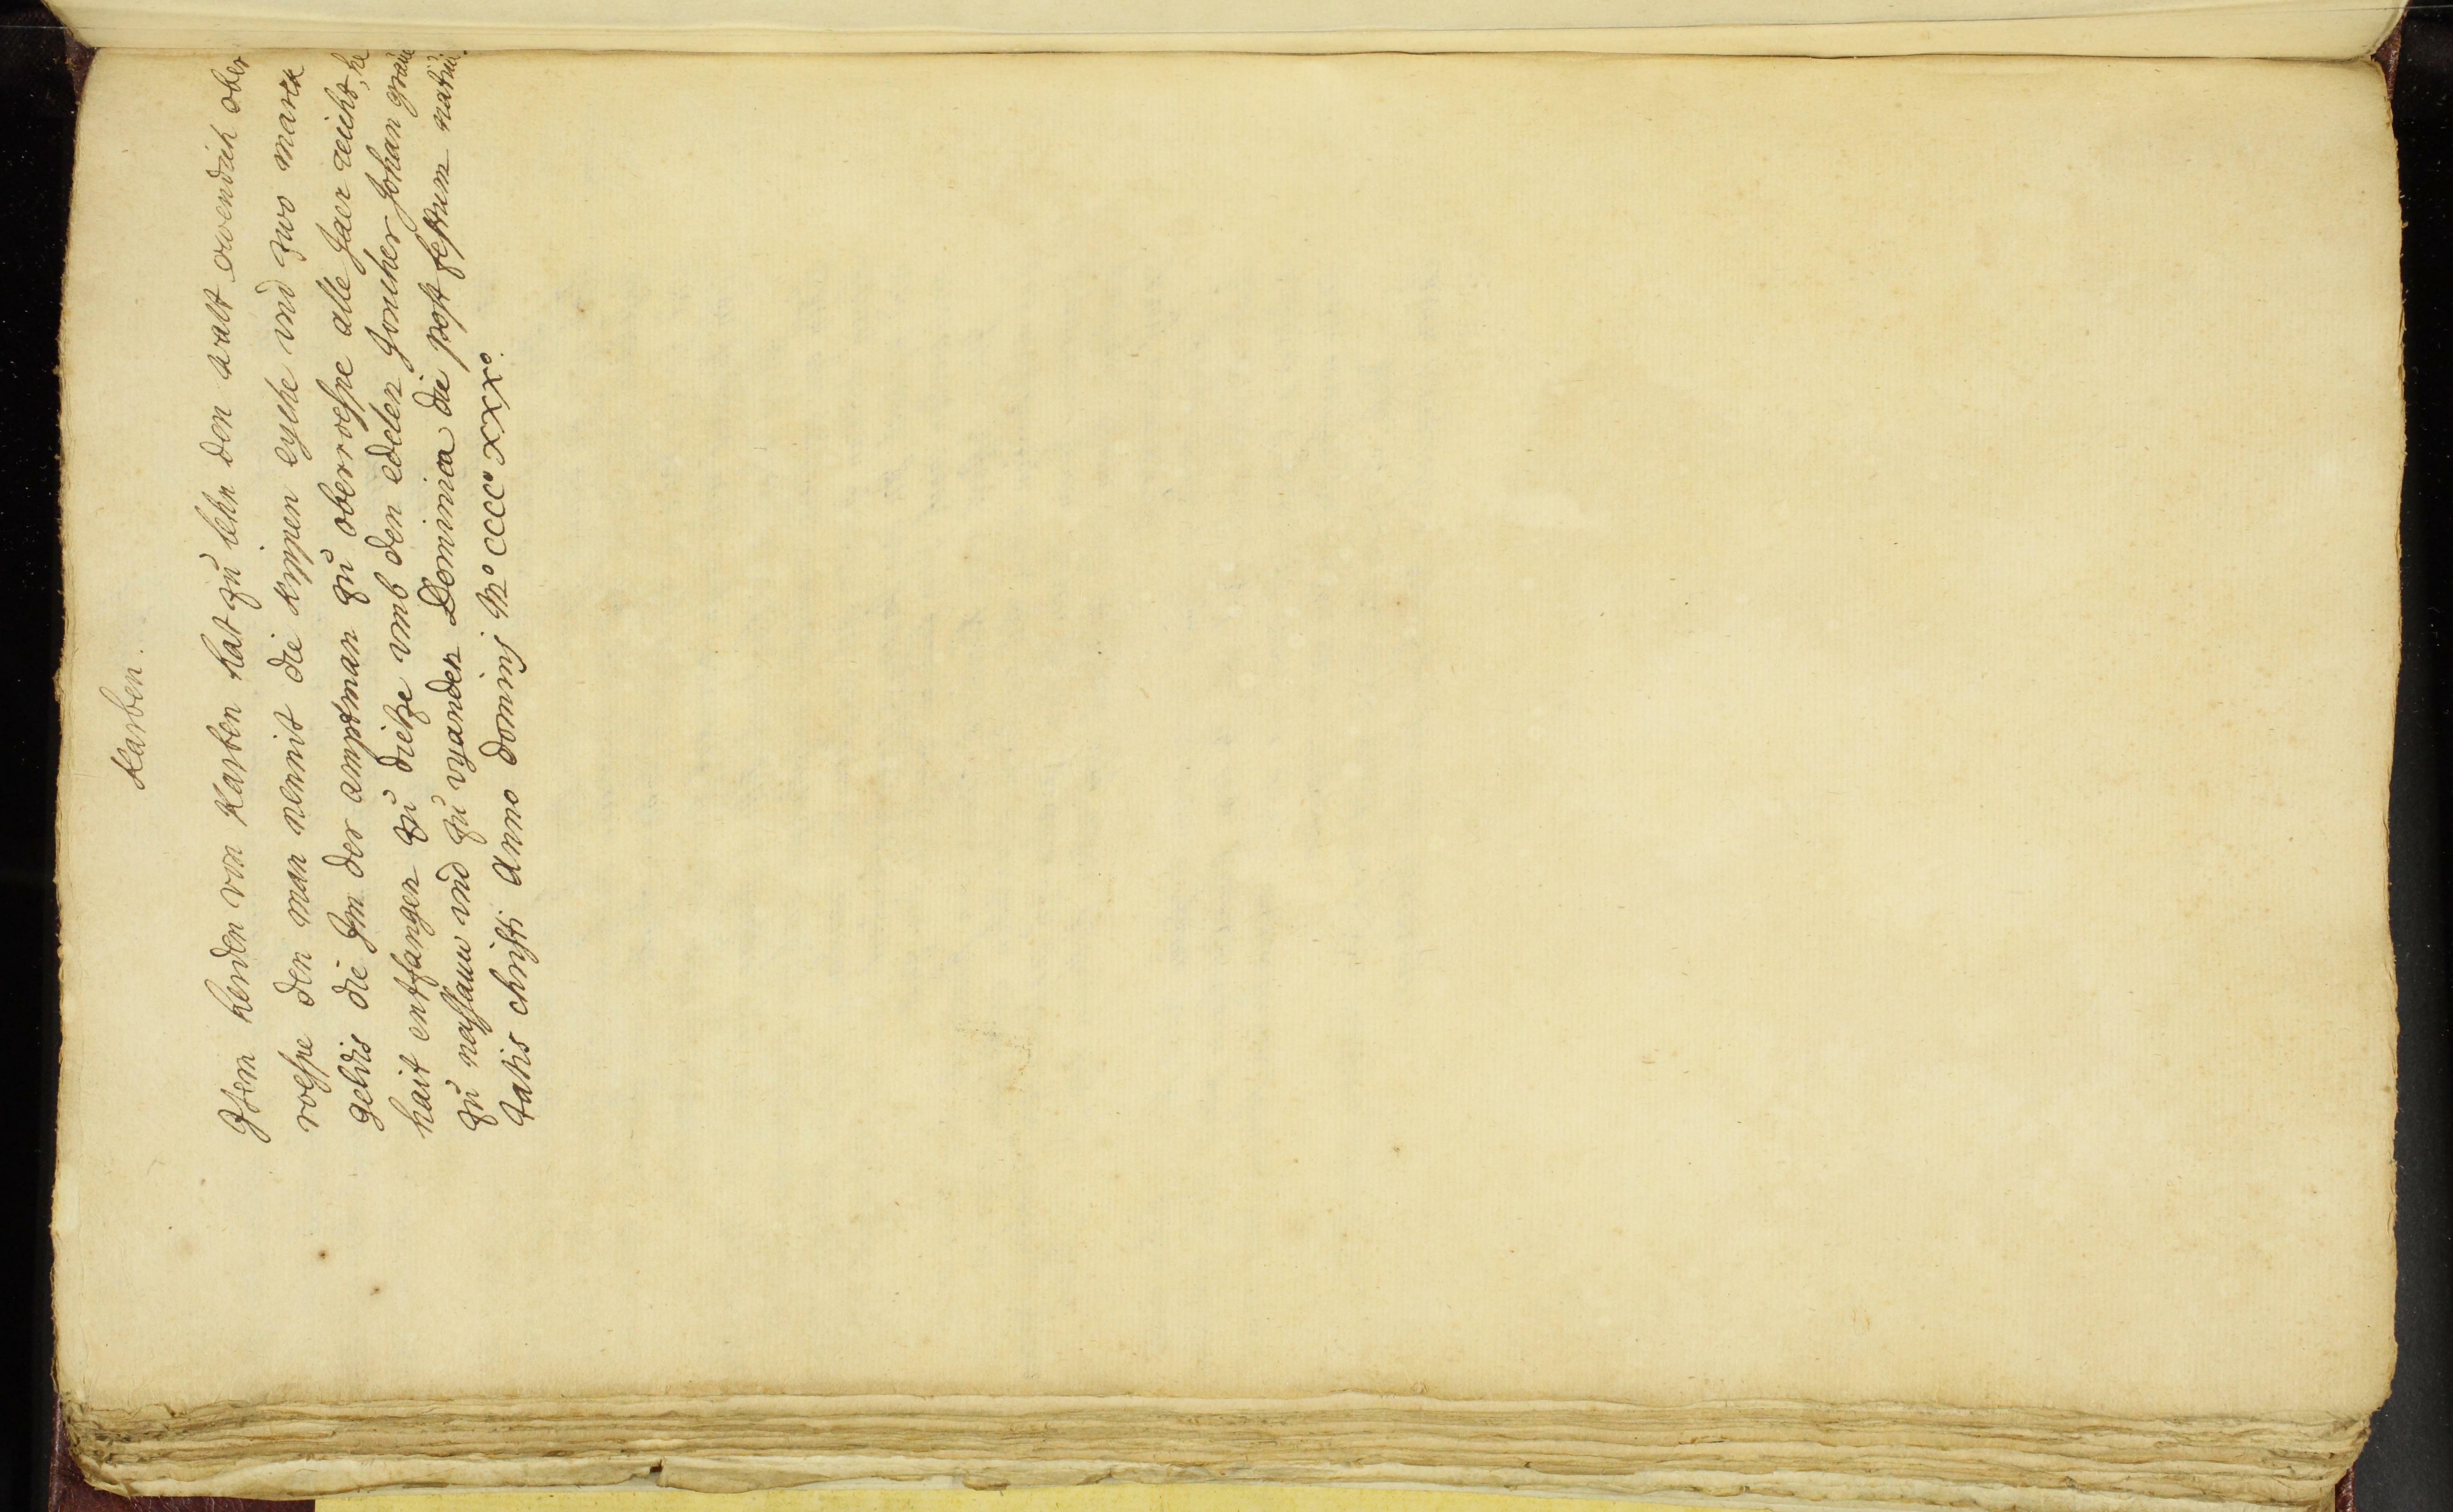 Karben.
Item henden von Karben hat zü lehn den walt owendich ober
roespe den man nennit die kyppen eyche vnd zwo marck
geldis die Jm der amptman zü oberroespe alle Jaer reicht, he
hait entfangen zü dietze vmb den edelen Joncher Johan graue
zü nassauw vnd zü vyanden Dominica die post festum natiui
tatis christi Anno dominj Mº CCCCº XXXº.